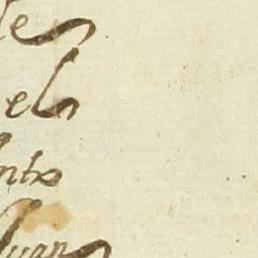 de
el
nto
Juan